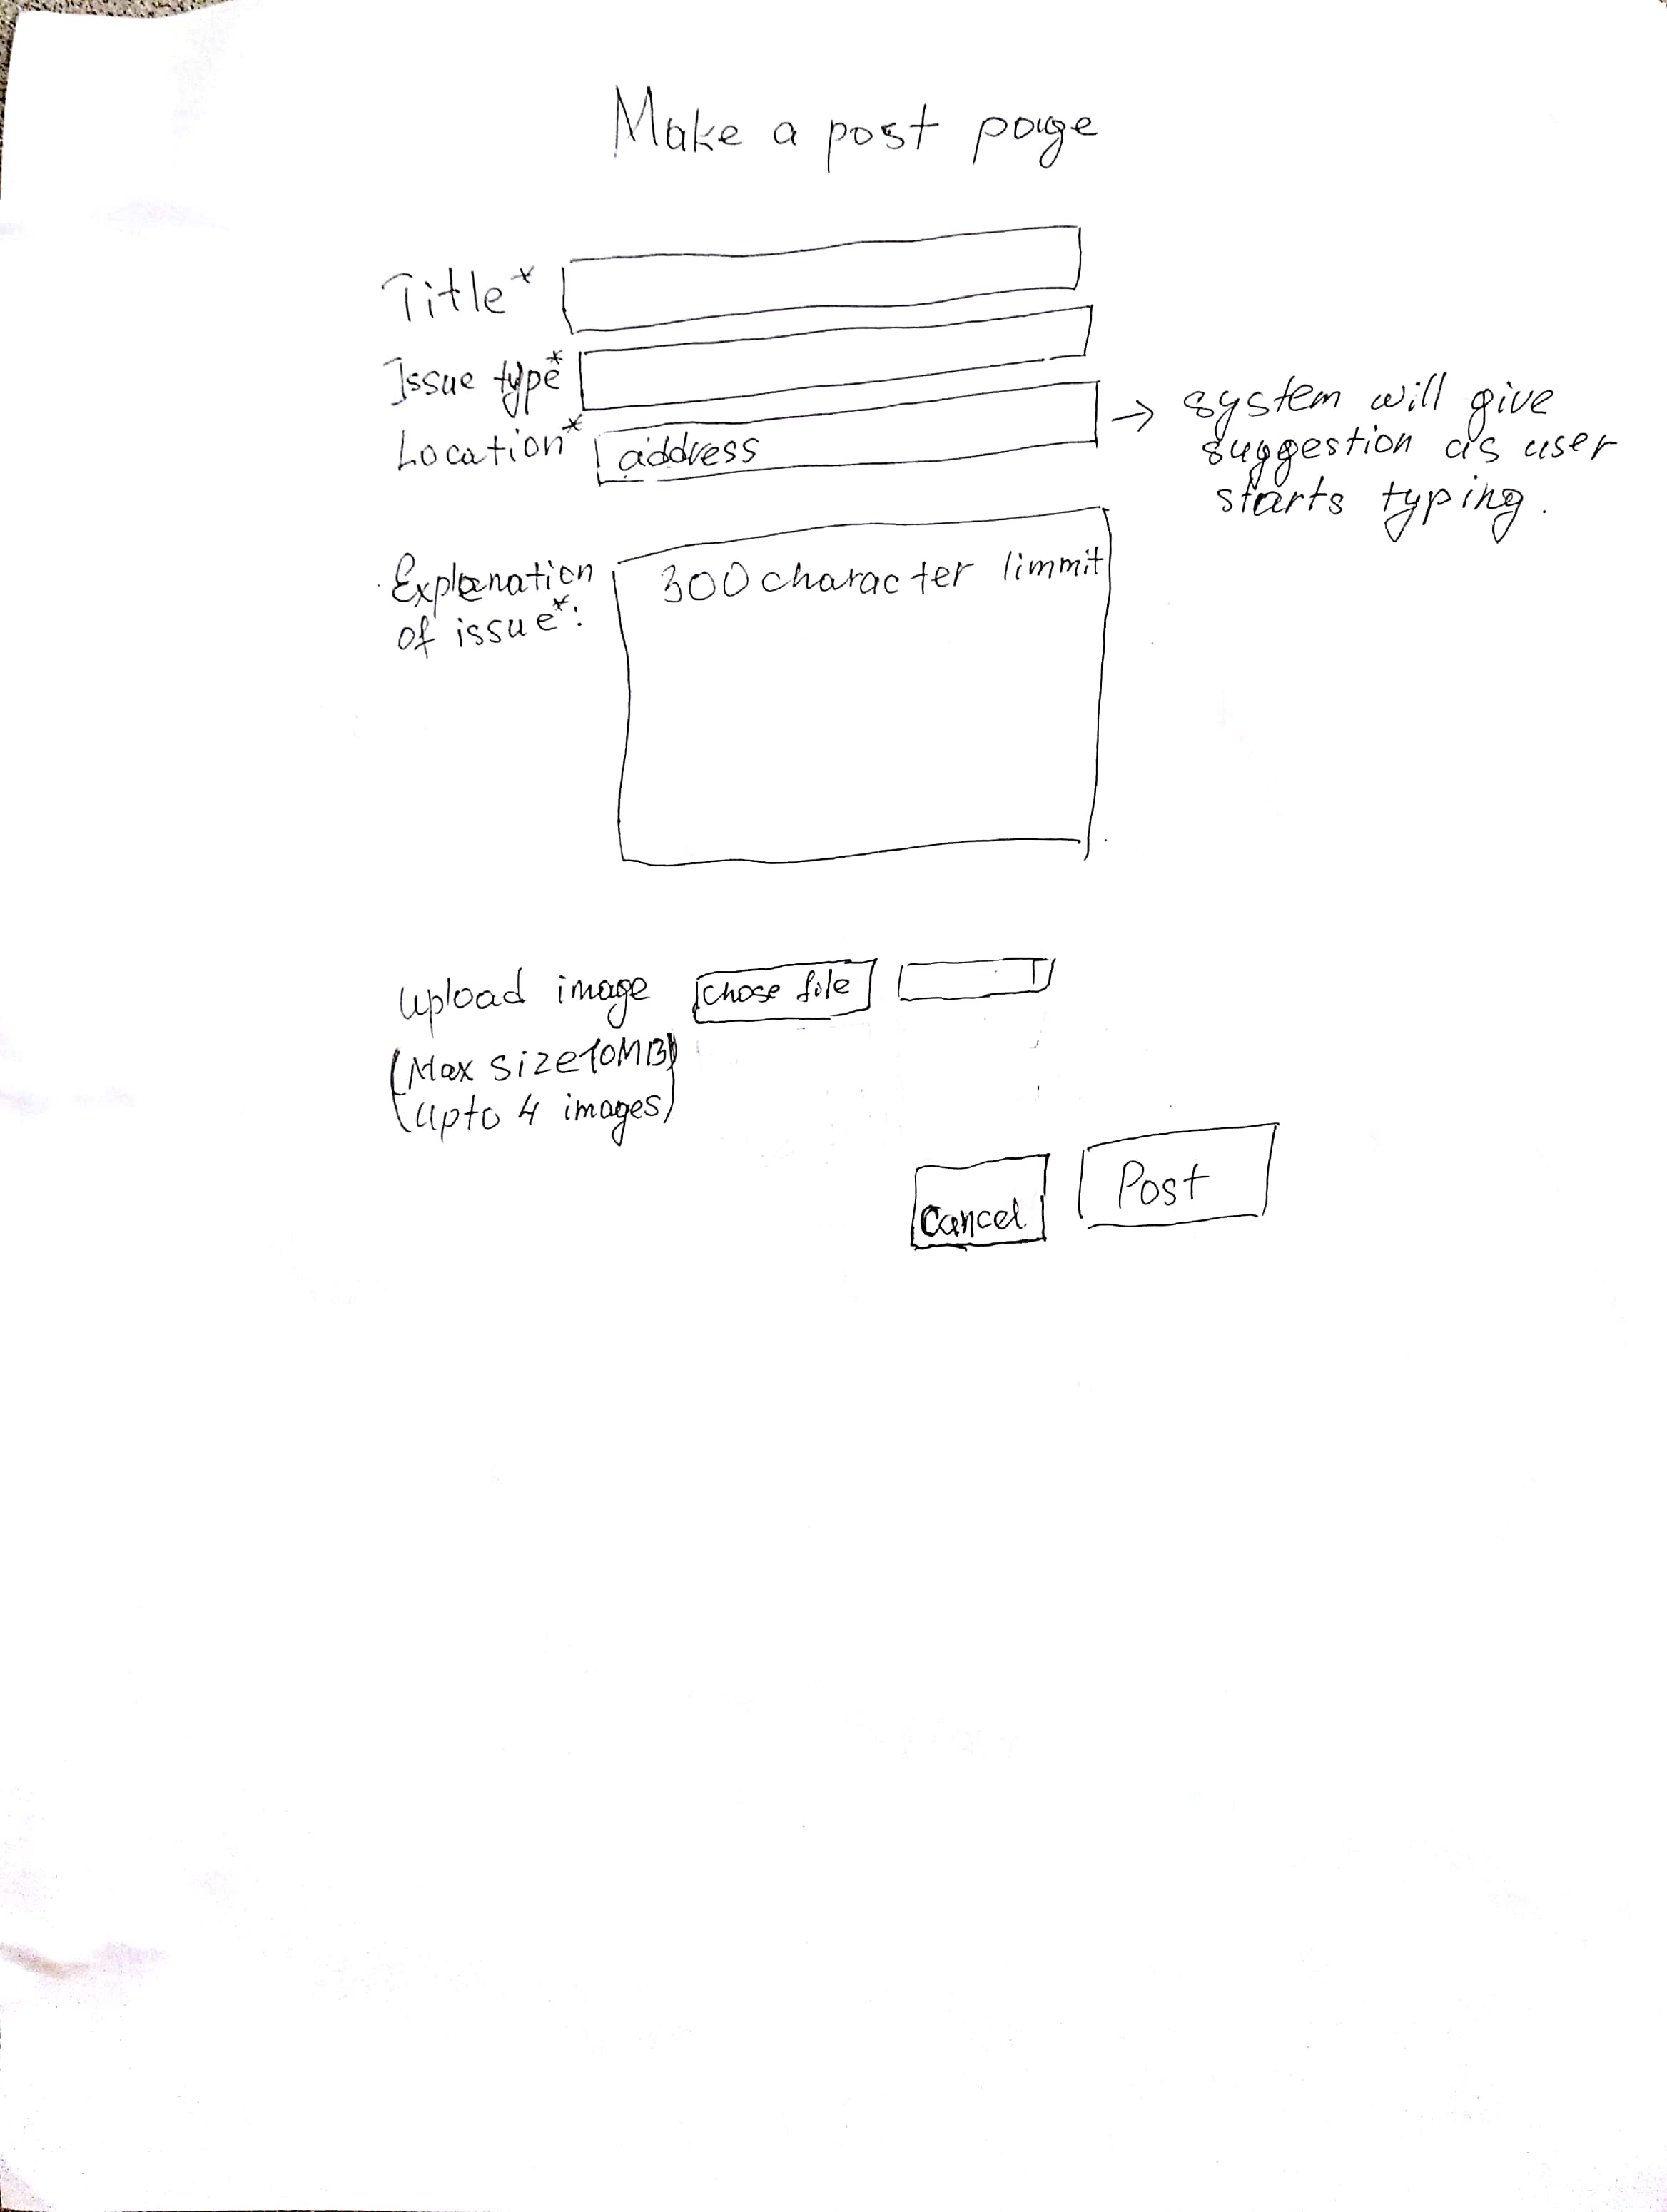 Make a post page
Title*
Issue type*
Location* address
→ system will give
suggestion as user
starts typing.
Explanation
of issue*:
300 character limmit
Upload image chose file
(Max size 10MB)
(Upto 4 images)
Cancel Post